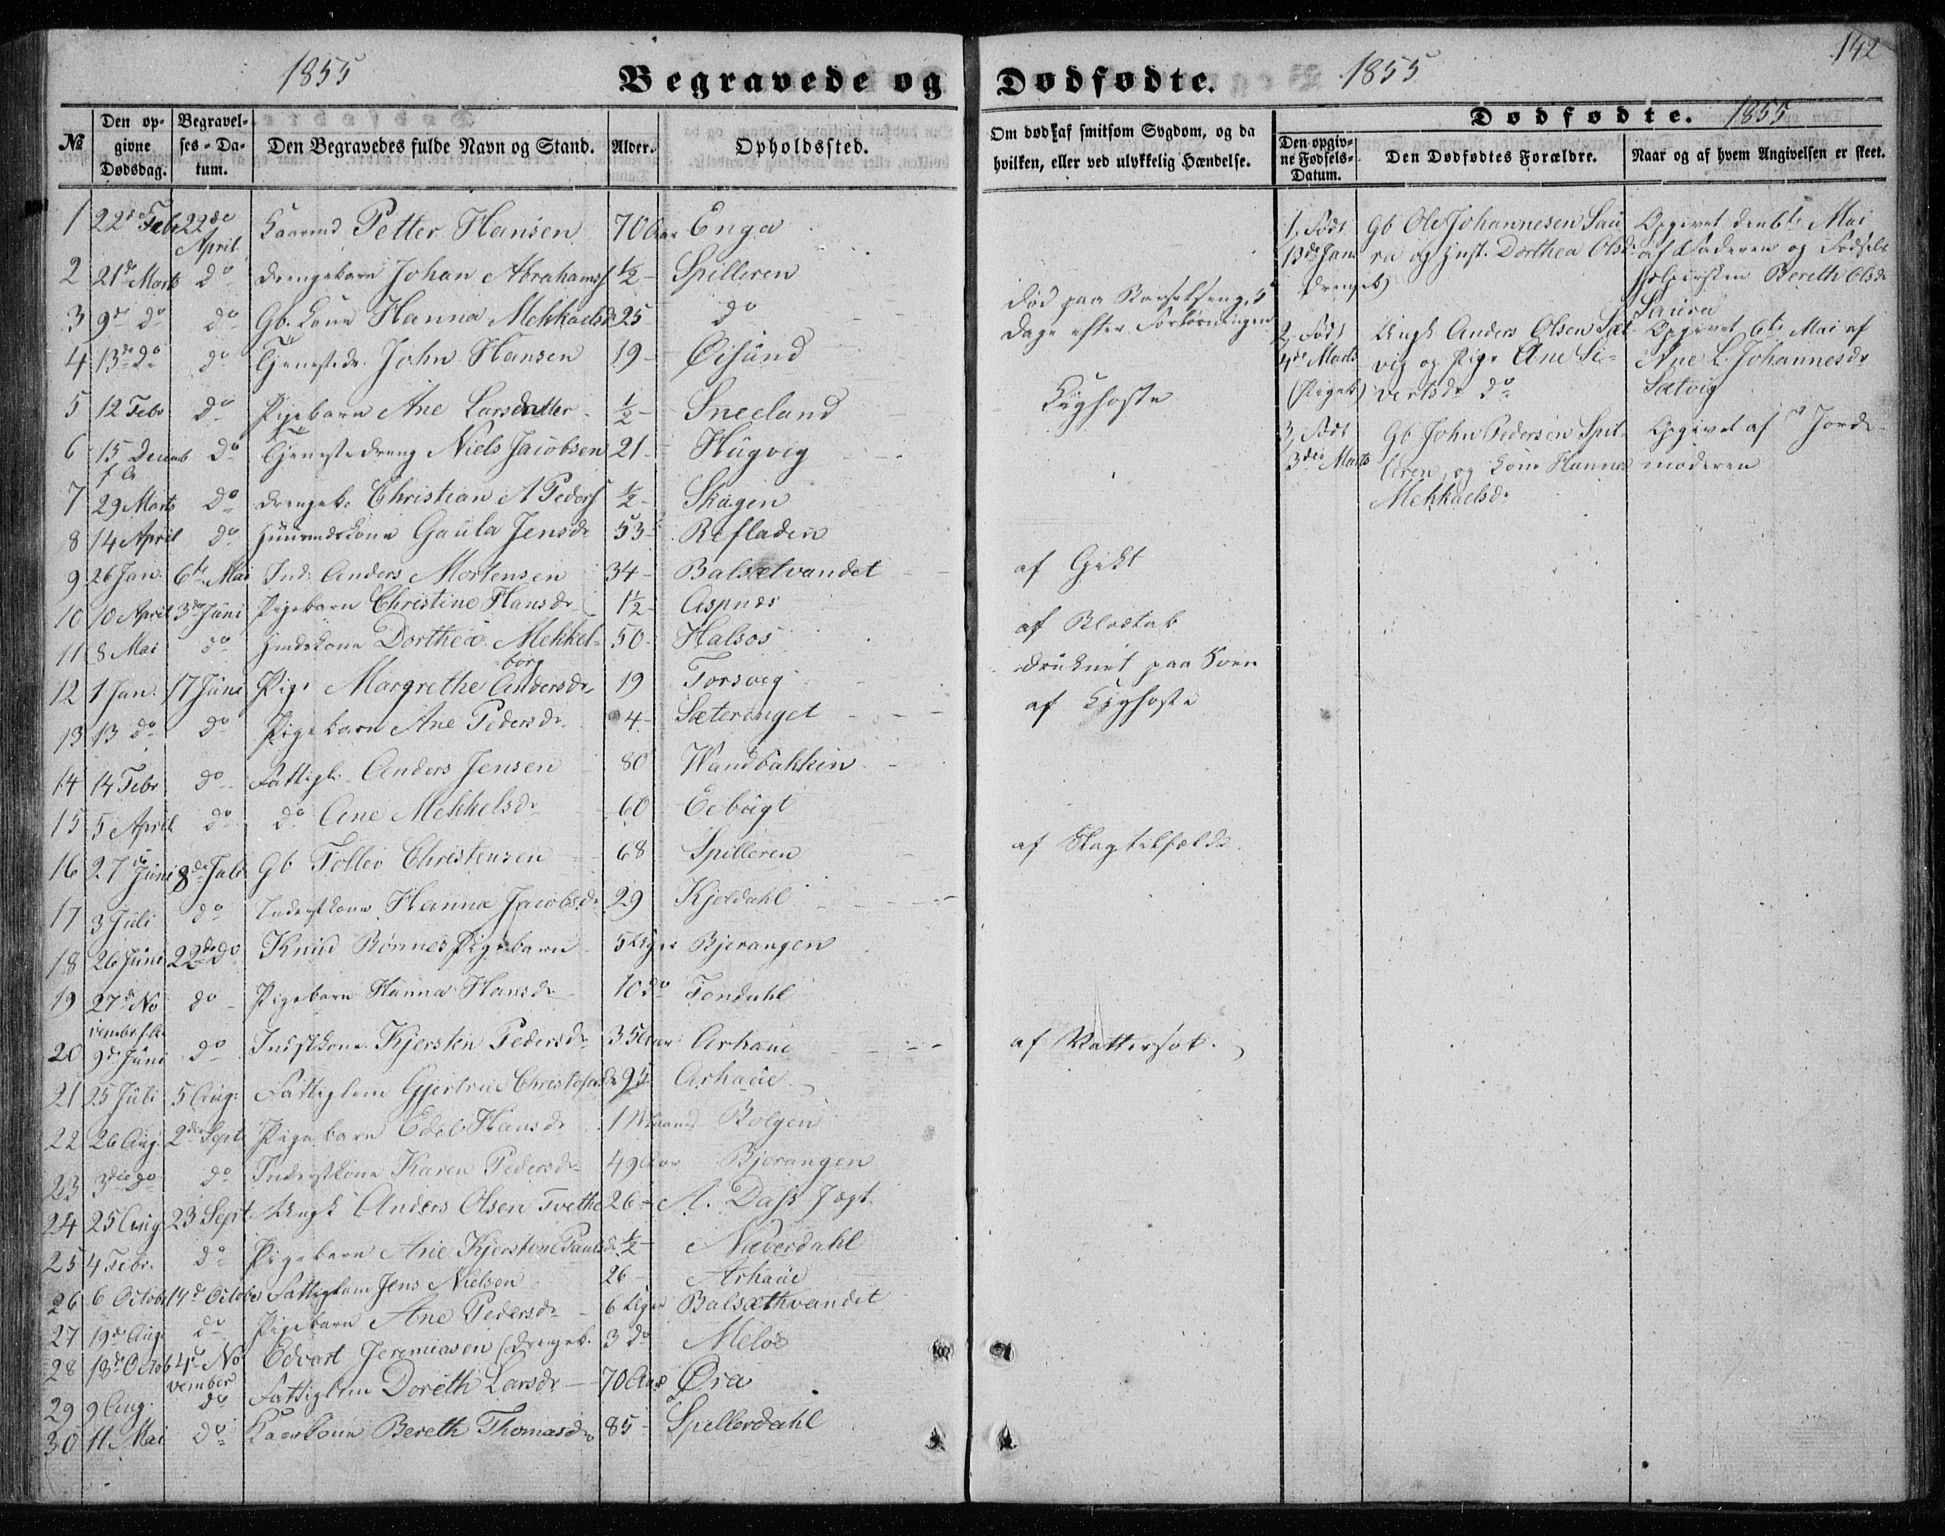 1855
Begravede og
Dødfødte.
1855
142
Dødfødte. 1855
№
Den op-
givne
Dødsdag.
Begravel-
ses-Da-
tum.
Den Begravedes fulde Navn og Stand.
Alder.
Opholdssted.
Om død af smitsom Sygdom, og da
hvilken, eller ved ulykkelig Hændelse.
Den opgiv-
ne Fødsels-
Datum.
Den Dødfødtes Forældre.
Naar og af hvem Angivelsen er skeet.
1 22de Febr 22de April Kaarmd Petter Hansen 70 Aar Enga
2 21de Marts do Drengebarn Johan Abrahams ½ - Spilleren
3 9de do do Gb. Kone Hanna Mehkaelsdr 25 - do
Død paa Barselseng, 5
Dage efter Forløsningen
4 13de do do Tjenestedr. John Hansen 19 - Øisund
5 12 Febr do Pigebarn Ane Larsdatter ½ - Sneeland
Kighoste
6 15 Decemb f. A. do Tjenestedreng Niels Jacobsen 21 - Hugvig
7 29 Marts do Drengeb. Christian A Peders ½ - Skagen
8 14 April do Huusmdskone Gaula Jensdr 53 - Refladen
9 26 Jan. 6te Mai Ind. Anders Mortensen 34 - Balsetvandet
af Gikt
10 10 April 3de Juni Pigebarn Christine Hansdr 1½ - Aspnes
11 8 Mai do Hmdskone Dorthea Mehkel- 50 - Halsos
af Blodtab
12 1 Jan. 17 Juni Pige Margrethe borg Andersdr 19 Torsvig
druknet paa Søen
13 13 do do Pigebarn Ane Pedersdr 4 - Sæteringet
af Kighoste
14 14 Febr do Fattigl. Anders Jensen 80 Wandbakken
15 5 April do do Ane Mehkelsdr 60 Eebugt
16 27de Juni 8de Juli Gb Tollev Christensen 68 Spilleren
af Slagtilfælde
17 3 Juli do Inderstkone Hanna Jacobsdr 29 Kjeldahl
18 26 Juni 22de do Knud Bønnes Pigebarn 5 Uger Bjerangen
19 27de November f. A. do Pigebarn Hanna Hansdr 10 do Tendahl
20 9de Juni do Indstkone Kjersten Pedersdr 35 Aar Arhaue
af Vattersot.
21 25 Juli 5 Aug. Fattiglem Gjertrud Christofersdr 95 Arhaue
22 26 Aug. 2den Sept. Pigebarn Edel Hansdr 1 Maaned Bolgen
23 3die do do Inderstkone Karen Pedersdr 49 Aar Bjerangen
24 25 Aug 23 Sept. Ungk Anders Olsen Tvethe 26 - A. Dass Jægt
25 4 Febr. do Pigebarn Ane Kjerstine Paulsdr ½ - Næverdahl
26 6 Octob 14de October Fattiglem Jens Nielsen 26 - Arhaue
27 19de Aug. do Pigebarn Ane Pedersdr - 6 Uger Balsæthvandet
28 18de Octob 4de November Edvart Jeremiasen (Drengeb. 3 do Meløe
29 9 Aug. do Fattiglem Doreth Larsdr - 70 Aar Øra
30 11 Mai do Kaarkone Bereth Thomasdr 85 - Spellerdahl
1, Født
13de Jan
Drengeb)
Gb Ole Johannesen Sau
ra og Hust. Dorthea Olsdr
Opgivet den 6te Mai
af Faderen og Fødsels
hjelpersken Bereth Olsdr
Saura
2, Født
4de Marts
(Pigeb)
Ungk Anders Olsen Sæt
vig og Pige Ane Si-
vertsdr do
Opgivet 6te Mai af
Ane L. Johannesdr
Sætvig
3, Født
3die Marts
Gb John Pedersen Spil-
leren, og Kone Hanna
Mehkaelsdr
Opgivet af Jorde-
moderen